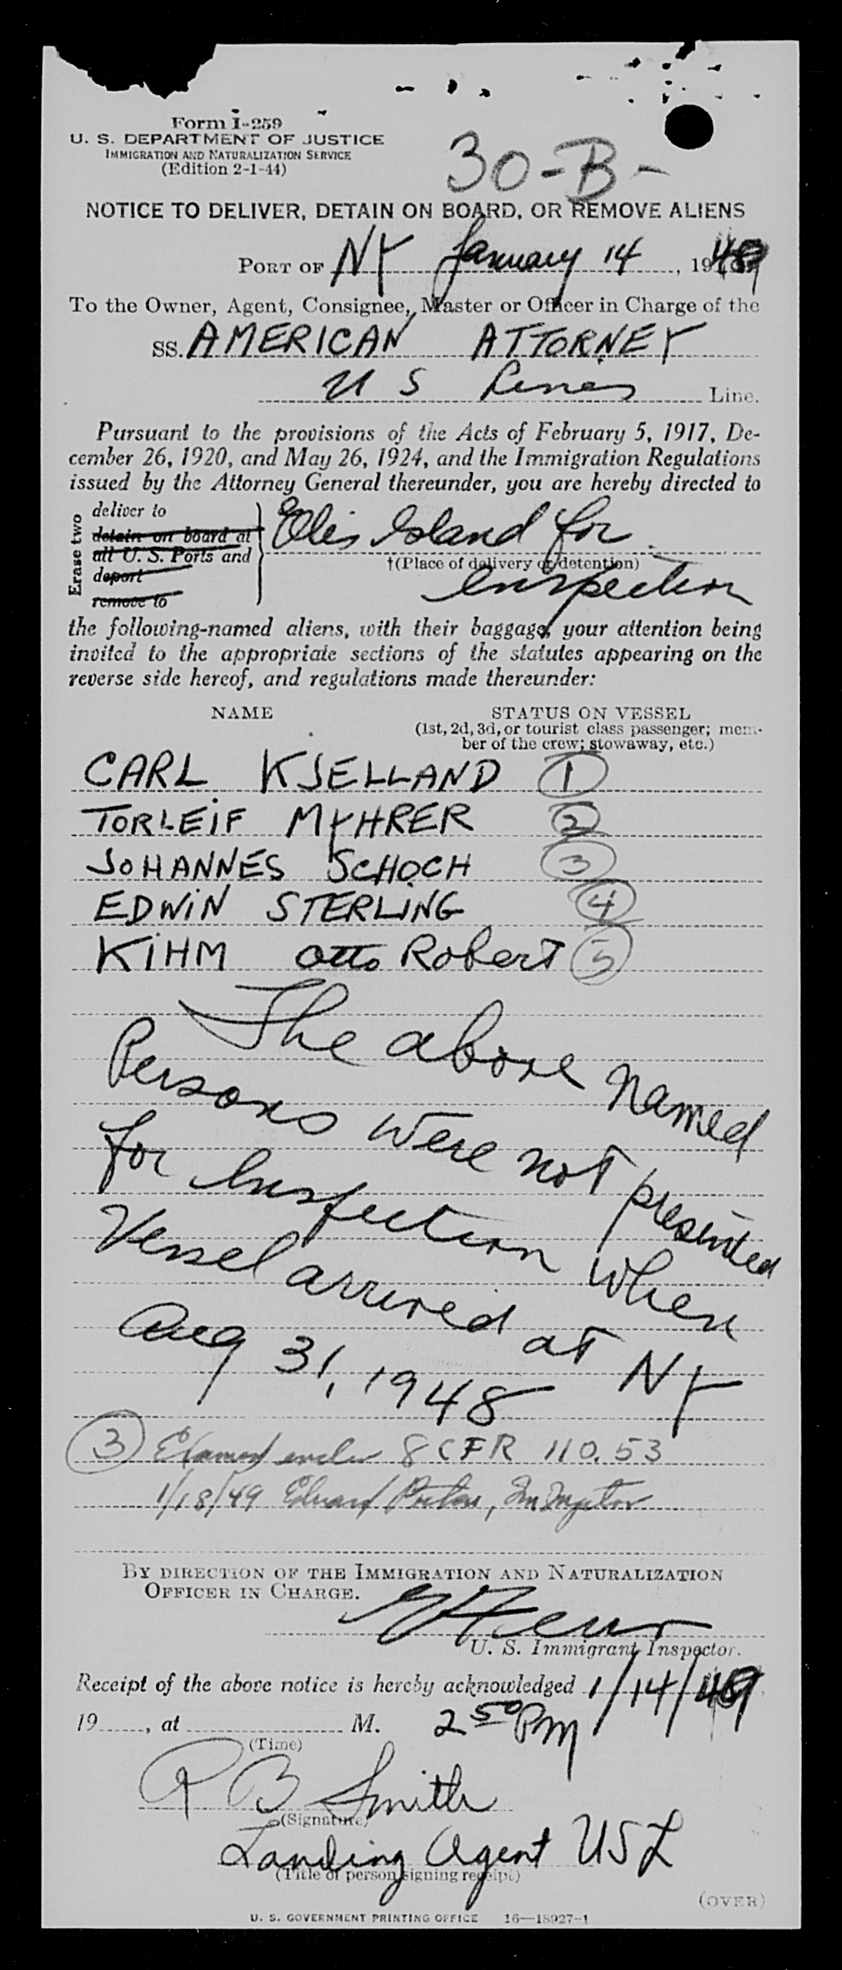 Form I-259
U. S. DEPARTMENT OF JUSTICE
IMMIGRATION AND NATURALIZATION SERVICE
(Edition 2-1-44)
30-B-
NOTICE TO DELIVER, DETAIN ON BOARD, OR REMOVE ALIENS
PORT OF NY January 14, 1949
To the Owner, Agent, Consignee, Master or Officer in Charge of the
SS. AMERICAN ATTORNEY
U S Lines Line.
Pursuant to the provisions of the Acts of February 5, 1917, De-
cember 26, 1920, and May 26, 1924, and the Immigration Regulations
issued by the Attorney General thereunder, you are hereby directed to
Erase two
deliver to
detain on board at
all U. S. Ports and
deport
remove to
Ellis Island for
†(Place of delivery or detention)
Inspection
the following-named aliens, with their baggage, your attention being
invited to the appropriate sections of the statutes appearing on the
reverse side hereof, and regulations made thereunder:
NAME STATUS ON VESSEL
(1st, 2d, 3d, or tourist class passenger; mem-
ber of the crew; stowaway, etc.)
CARL KJELLAND 1
TORLEIF MYHRER 2
JOHANNES SCHOCH 3
EDWIN STERLING 4
KIHM Otto Robert 5
The above named
Persons were not presented
for Inspection when
Vessel arrived at NY
Aug 31, 1948
3 Examined under 8 CFR 110.53
1/18/49 Edward
BY DIRECTION OF THE IMMIGRATION AND NATURALIZATION
OFFICER IN CHARGE.
U. S. Immigrant Inspector.
Receipt of the above notice is hereby acknowledged 1/14/49
19, at M. 2 50 PM
(Time)
R B Smith
(Signature)
Landing Agent USL
(Title of person signing receipt)
(OVER)
U. S. GOVERNMENT PRINTING OFFICE 16—18927-1